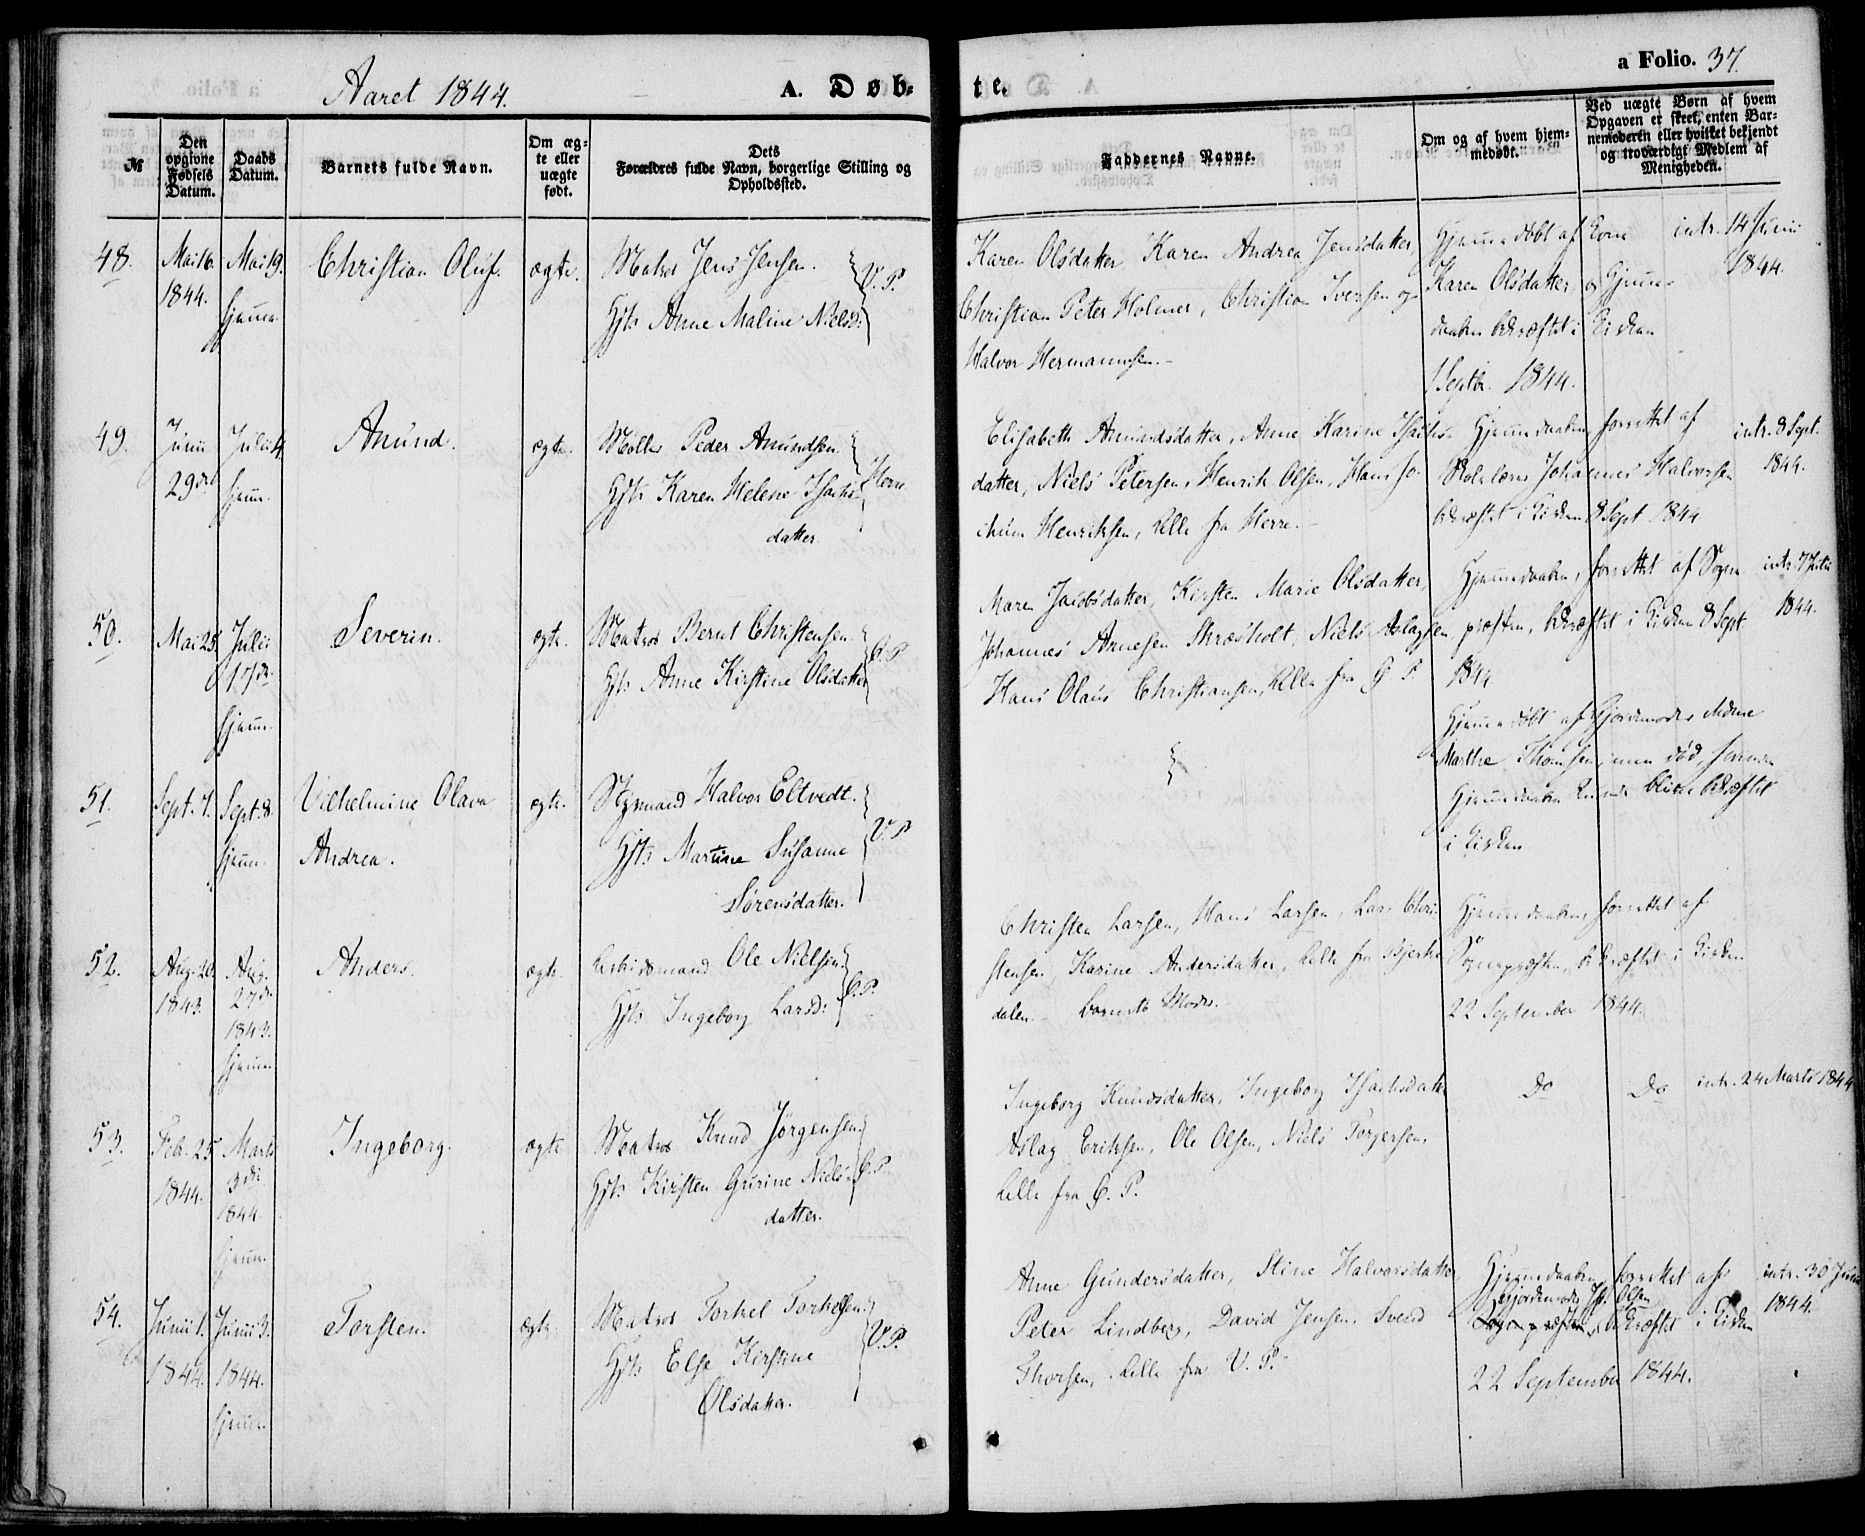 Aaret 1844.
A. Døb-
te.
a Folio. 37
№
Den opgivne Fødsels Datum.
Daabs Datum.
Barnets fulde Navn.
Om ægte eller uægte født.
Dets
Forældres fulde Navn, borgerlige Stilling og
Opholdssted.
Faddernes Navne.
Om og af hvem hjem-
medøbt.
Ved uægte Børn af hvem
Opgaven er skeet, enten Bar-
nemoderen eller hvilket bekjendt
og troværdigt Medlem af
Menigheden.
48.
Mai 16.
1844.
Mai 19.
hjemme
Christian Oluf.
ægte.
Matros Jens Jensen.
Hst. Anne Maline Nielsd:
V. P.
Karen Olsdatter, Karen Andrea Jensdatter,
Christian Peter Holmer, Christian Iversen og
Halvor Hermannsen.
Hjemmedøbt af
Karen Olsdatter, og Hjemme-
daaben bekræftet i Kirken
1 Septbr. 1844.
intr. 14 Juni
1844.
49.
Junii
29de
Julii 4.
hjem.
Amund.
ægte.
Møller Peder Amundsen.
Hst. Karen Helene Isachs-
datter
Herre
Elisabeth Amundsdatter, Anne Karine Isachs-
datter, Niels Petersen, Henrik Olsen, Hans Jo-
chum Henriksen, Alle fra Herre.
Hjemmedaaben forrettet af
Skolelærer Johannes Halvorsen
bekræftet i Kirken 8 Sept 1844
intr. 8 Sept.
1844.
50.
Mai 25.
Julii
17de
hjem.
Severin.
ægte.
Matros Bernt Christensen.
Hst. Anne Kirstine Olsdatter
Ø. P
Maren Jacobsdatter, Kirsten Marie Olsdatter,
Johannes Arnesen Skrøsholt, Niels Aslagsen,
Hans Olaus Christiansen, Alle fra Ø P.
Hjemmedaaben, forrettet af Sogne
præsten, bekræftet i Kirken 8 Sept
1844
intr. 7 Julii
1844.
51.
Sept. 7.
Sept. 8.
hjem.
Vilhelmine Olava
Andrea.
ægte.
Styrmand Halvor Eltvedt.
Hst. Martine Susanne
Sørensdatter.
V. P
Hjemmedøbt af Gjordemoder Madme
Marthe Thomsen, men død, forinden
Hjemmedaaben kunde blive bekræftet
i Kirken
52.
Aug. 20.
1843.
Aug.
27de
1843.
hjemme
Anders.
ægte.
Arbeidsmand Ole Nielsen.
Hst. Ingeborg Larsd:
Ø. P.
Christen Larsen, Hans Larsen, Lars Chri-
stensen, Karine Andersdatter, Alle fra Bjerke-
dalen. barnets Moder.
Hjemmedaaben forrettet af
Sognepræsten, bekræftet i Kirken
22 September 1844.
53.
Feb. 25
1844.
Marts
3die
1844.
hjem.
Ingeborg.
ægte
Matros Knud Jörgensen.
Hst. Kirsten Gurine Niels-
datter.
Ø. P.
Ingeborg Knudsdatter, Ingeborg Isachsdatter
Aslag Eriksen, Ole Olsen, Niels Torjersen,
Alle fra Ø. P.
Do
Do
intr. 24 Marts 1844
54.
Junii 1.
1844.
Junii 3.
1844.
hjem.
Torsten.
ægte.
Matros Torkel Torkelsen.
Hst. Else Kirstine
Olsdatter.
V. P.
Anne Gundersdatter, Stine Halvorsdatter,
Peter Lindberg, David Jensen, Svend
Thorsen, Alle fra V. P.
Hjemmedaaben, forrettet af
Gjordemoder Olsen
Sognepræsten, bekræftet i Kirken
22 September 1844.
intr. 30 Junii
1844.